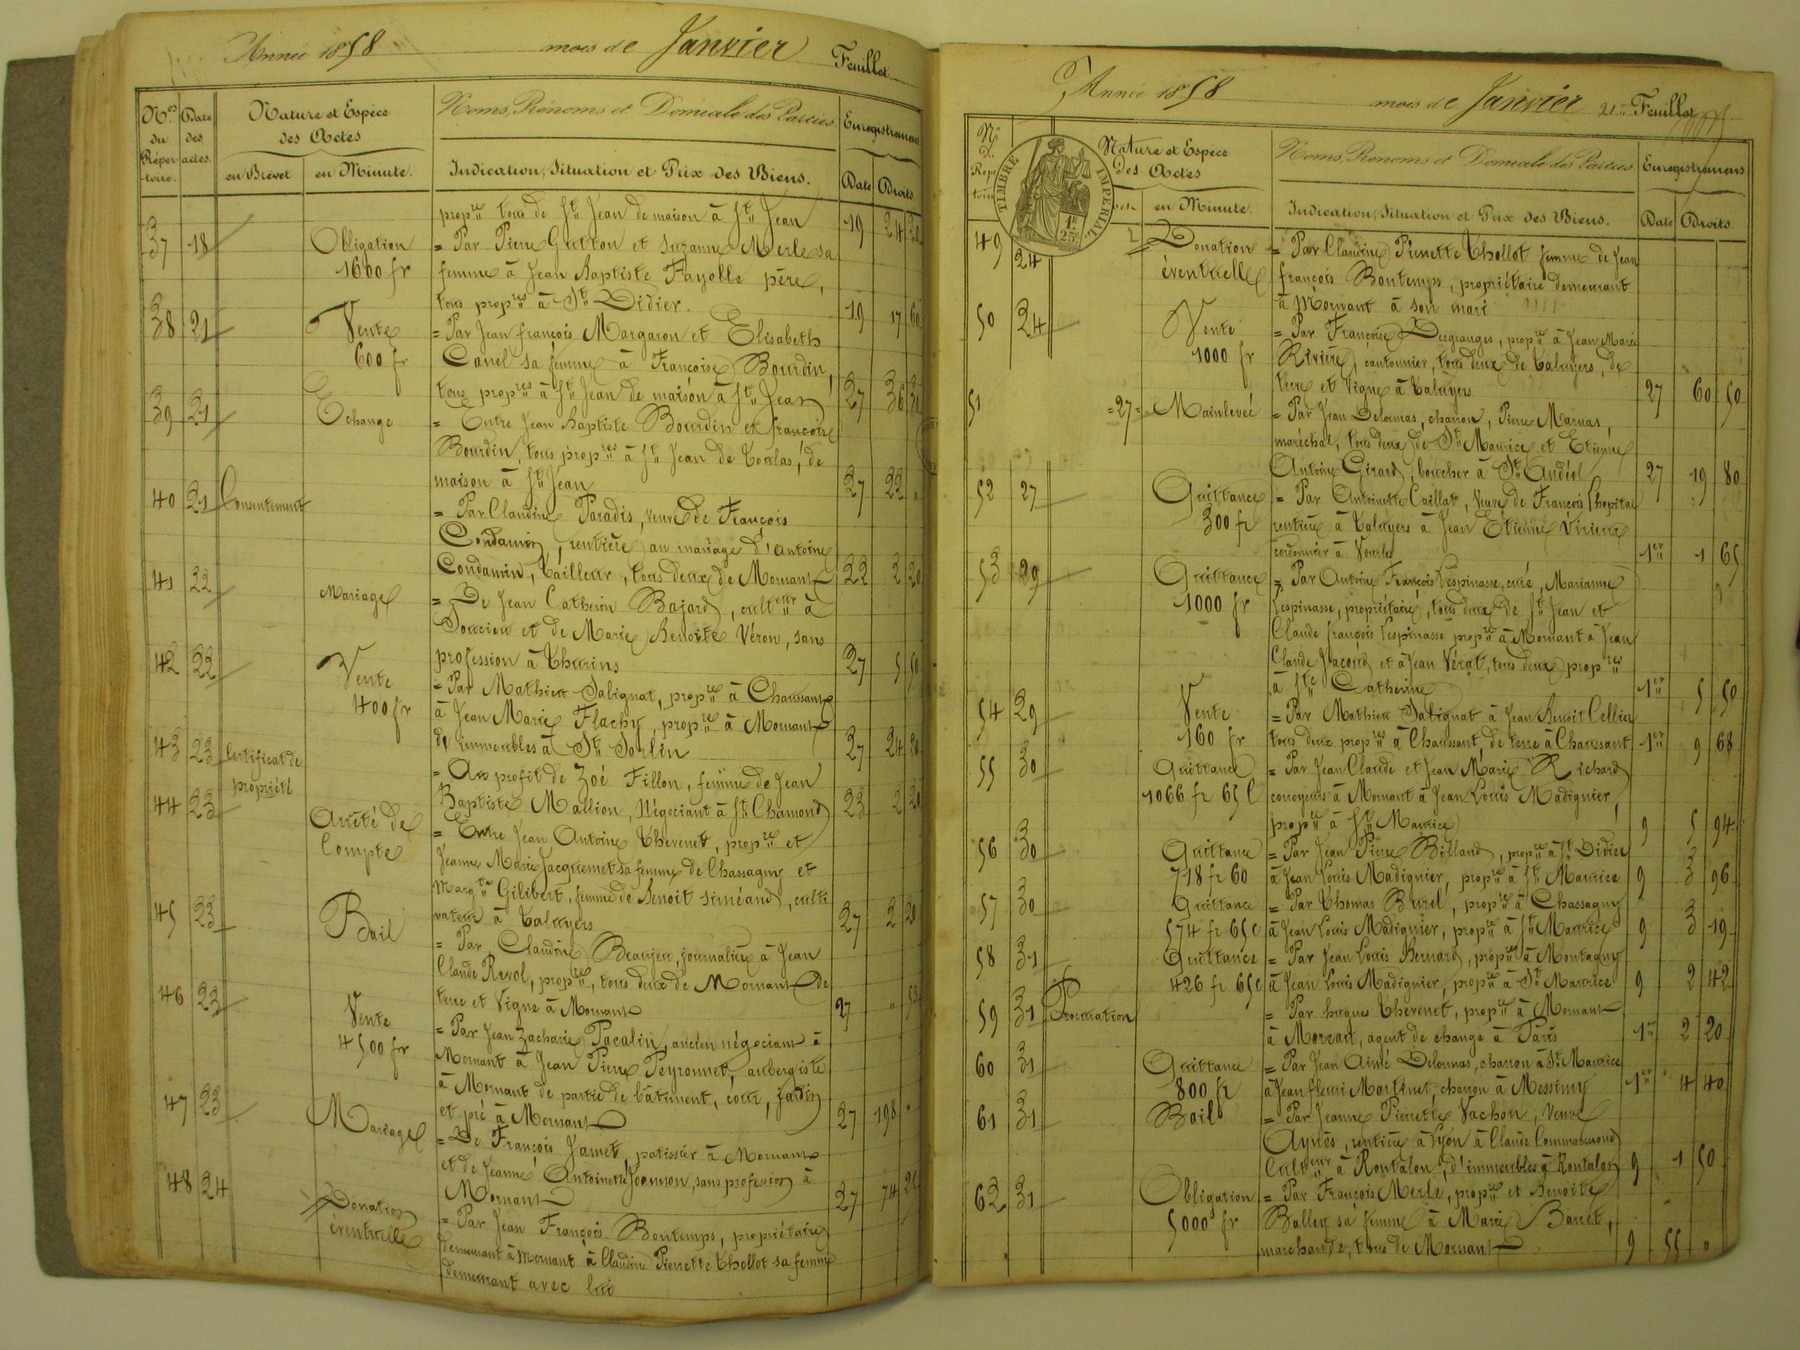 Année 1858 mois de Janvier Feuillet
Nos du Répertoire. Date des actes. Nature et Espèce des Actes en Brevet en Minute. Noms, Prénoms et Domicile des Parties Indication, Situation et Prix des Biens. Enregistrement Date Droits.
propres tous de St Jean de maison à St Jean 19 24 20
37 18 Obligation = Par Pierre Gutton et Suzanne Merle sa
1600 fr femme à Jean Baptiste Fayolle père,
tous propres à St Didier. 19 17 60
38 21 Vente = Par Jean françois Margaron et Elisabeth
600 fr Canel sa femme à Françoise Bourdin,
tous propres à St Jean de maison à St Jean 27 36 30
39 21 Echange = Entre Jean Baptiste Bourdin et françoise
Bourdin, tous propres à St Jean de Touslas, de
maison à St Jean 27 22 "
40 21 Consentement = Par Claudine Paradis, veuve de François
Condamin, rentière au mariage d'Antoine
Condamin, Tailleur, tous deux de Mornant 22 2 20
41 22 Mariage = De Jean Catherin Bajard, cultteur à
Sourcieu et de Marie Benoite Véron, sans
profession à Thurins 27 5 50
42 22 Vente = Par Mathieu Salignat, propre à Chaussant
400 fr à Jean Marie Flachy, propre à Mornant
de immeubles à St Sorlin 27 24 20
43 23 Certificat de propriété = Au profit de Zoé Fillon, femme de Jean
Baptiste Mallion, Négociant à St Chamond 23 2 20
44 23 Arrêté de Compte = Entre Jean Antoine Thevenet, propre et
Jeanne Marie Jacquemet sa femme de Chassagny et
Margte Gilibert, femme de Benoit Siméand, culti
vateur à Taluyers 27 2 20
45 23 Bail = Par Claudine Beaujeu, journalière à Jean
Claude Revol, propre, tous deux de Mornant de
terre et Vigne à Mornant 27 "
46 23 Vente = Par Jean Zacharie Pacalin, ancien négociant à
4500 fr Mornant à Jean Pierre Peyronnet, aubergiste
à Mornant de partie de bâtiment, cour, jardin
et pré à Mornant 27 198 "
47 23 Mariage = De François Jamet, patissier à Mornant
et de Jeanne Antoinette Joannon, sans profession à
Mornant 27 74
48 24 Donation = Par Jean François Bontemps, propriétaire
éventuelle demeurant à Mornant à Claudine Pierrette Thollot sa femme
demeurant avec lui
Année 1858 mois de Janvier 21e Feuillet
No Du Répertoire Nature et Espèce Des Actes en Minute. Noms, Prénoms et Domicile des Parties Indication, Situation et Prix des Biens. Enregistrement Date Droits.
TIMBRE IMPERIAL 1F 25C
49 24 Donation = Par Claudine Pierrette Thollot femme de Jean
éventuelle françois Bontemps, propriétaire demeurant
à Mornant à son mari
50 24 Vente = Par Françoise Desgranges, propre à Jean Marie
1000 fr Rivière, cantonnier, tous deux de Taluyers, de
terre et Vigne à Taluyers 27 60 50
51 27 Mainlevée = Par Jean Delormas, charron, Pierre Marnas,
maréchal, tous deux de St Maurice et Etienne
Antoine Girard, boucher à St Andéol 27 19 80
52 27 Quittance = Par Antoinette Caillat, Veuve de François Lhopital
300 fr rentière à Taluyers à Jean Etienne Virieux
cordonnier à Vourles 1er 1 65
53 29 Quittance = Par Antoine François Lespinasse, curé, Marianne
1000 fr Lespinasse, propriétaire, tous deux de St Jean et
Claude françois Lespinasse propre à Mornant à Jean
Claude Jacoud et à Jean Vérat, tous deux propres
à Ste Catherine 1er 5 50
54 29 Vente = Par Mathieu Salignat à Jean Benoit Cellier
160 fr tous deux propres à Chaussant, de terre à Chaussant 1er 9 68
55 30 Quittance = Par Jean Claude et Jean Marie Richard
1066 fr 65 c corroyeurs à Mornant à Jean Louis Madignier,
propre à St Maurice 9 5 94
56 30 Quittance = Par Jean Pierre Billand, propre à St Didier
718 fr 60 à Jean Louis Madignier, propre à St Maurice 9 3 96
57 30 Quittance = Par Thomas Burel, propre à Chassagny
574 fr 65 c à Jean Louis Madignier, propre à St Maurice 9 3 19
58 31 Quittance = Par Jean Louis Bernard, propre à Montagny
426 fr 65 c à Jean Louis Madignier, propre à St Maurice 9 2 42
59 31 Procuration = Par hugues Thevenet, propre à Mornant
à Moreau, agent de change à Paris 1er 2 20
60 31 Quittance = Par Jean Aimé Delormas, charron à St Maurice
800 fr à Jean fleuri Martinet, charron à Messimy 1er 4 40
61 31 Bail = Par Jeanne Pierrette Vachon, Veuve
Aynès, rentière à Lyon à Claude Commarmond
Cultteur à Rontalon, d'immeubles à Rontalon 9 1 50
62 31 Obligation = Par François Merle, propre et Benoite
5000 fr Balley sa femme à Marie Barret,
marchande, tous de Mornant 9 55 "